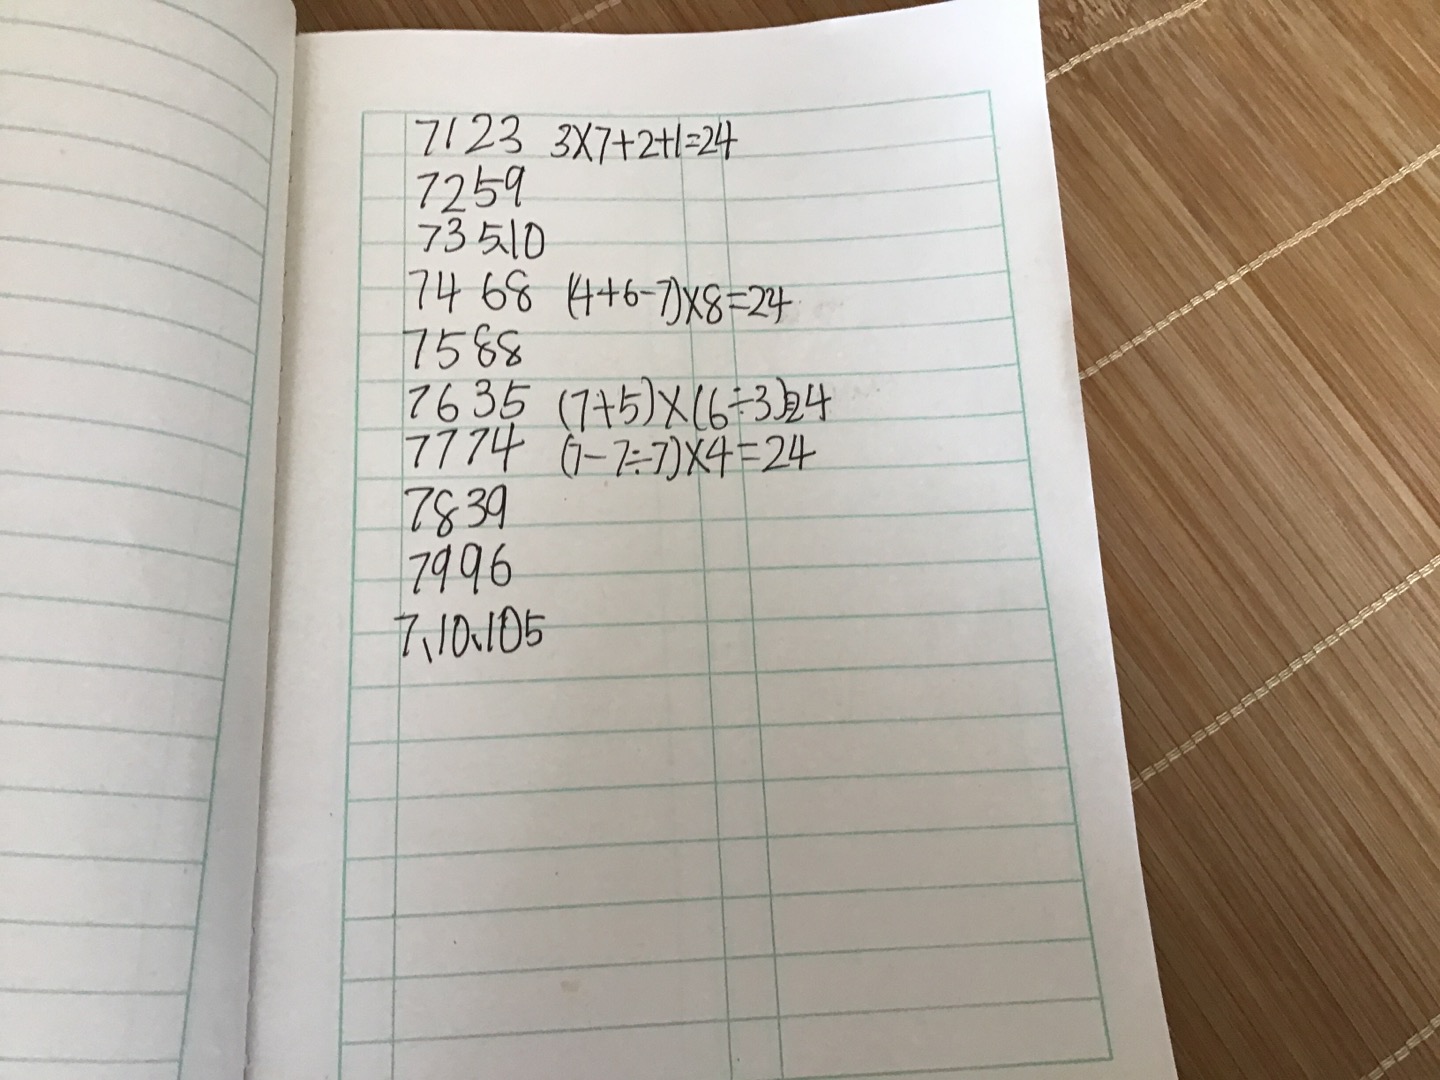 7123 3×7+2+1=24
7259
735、10
7468 (4+6-7)×8=24
7588
7635 (7+5)×(6÷3)=24
7774 (7-7÷7)×4=24
7839
7996
7、10、105